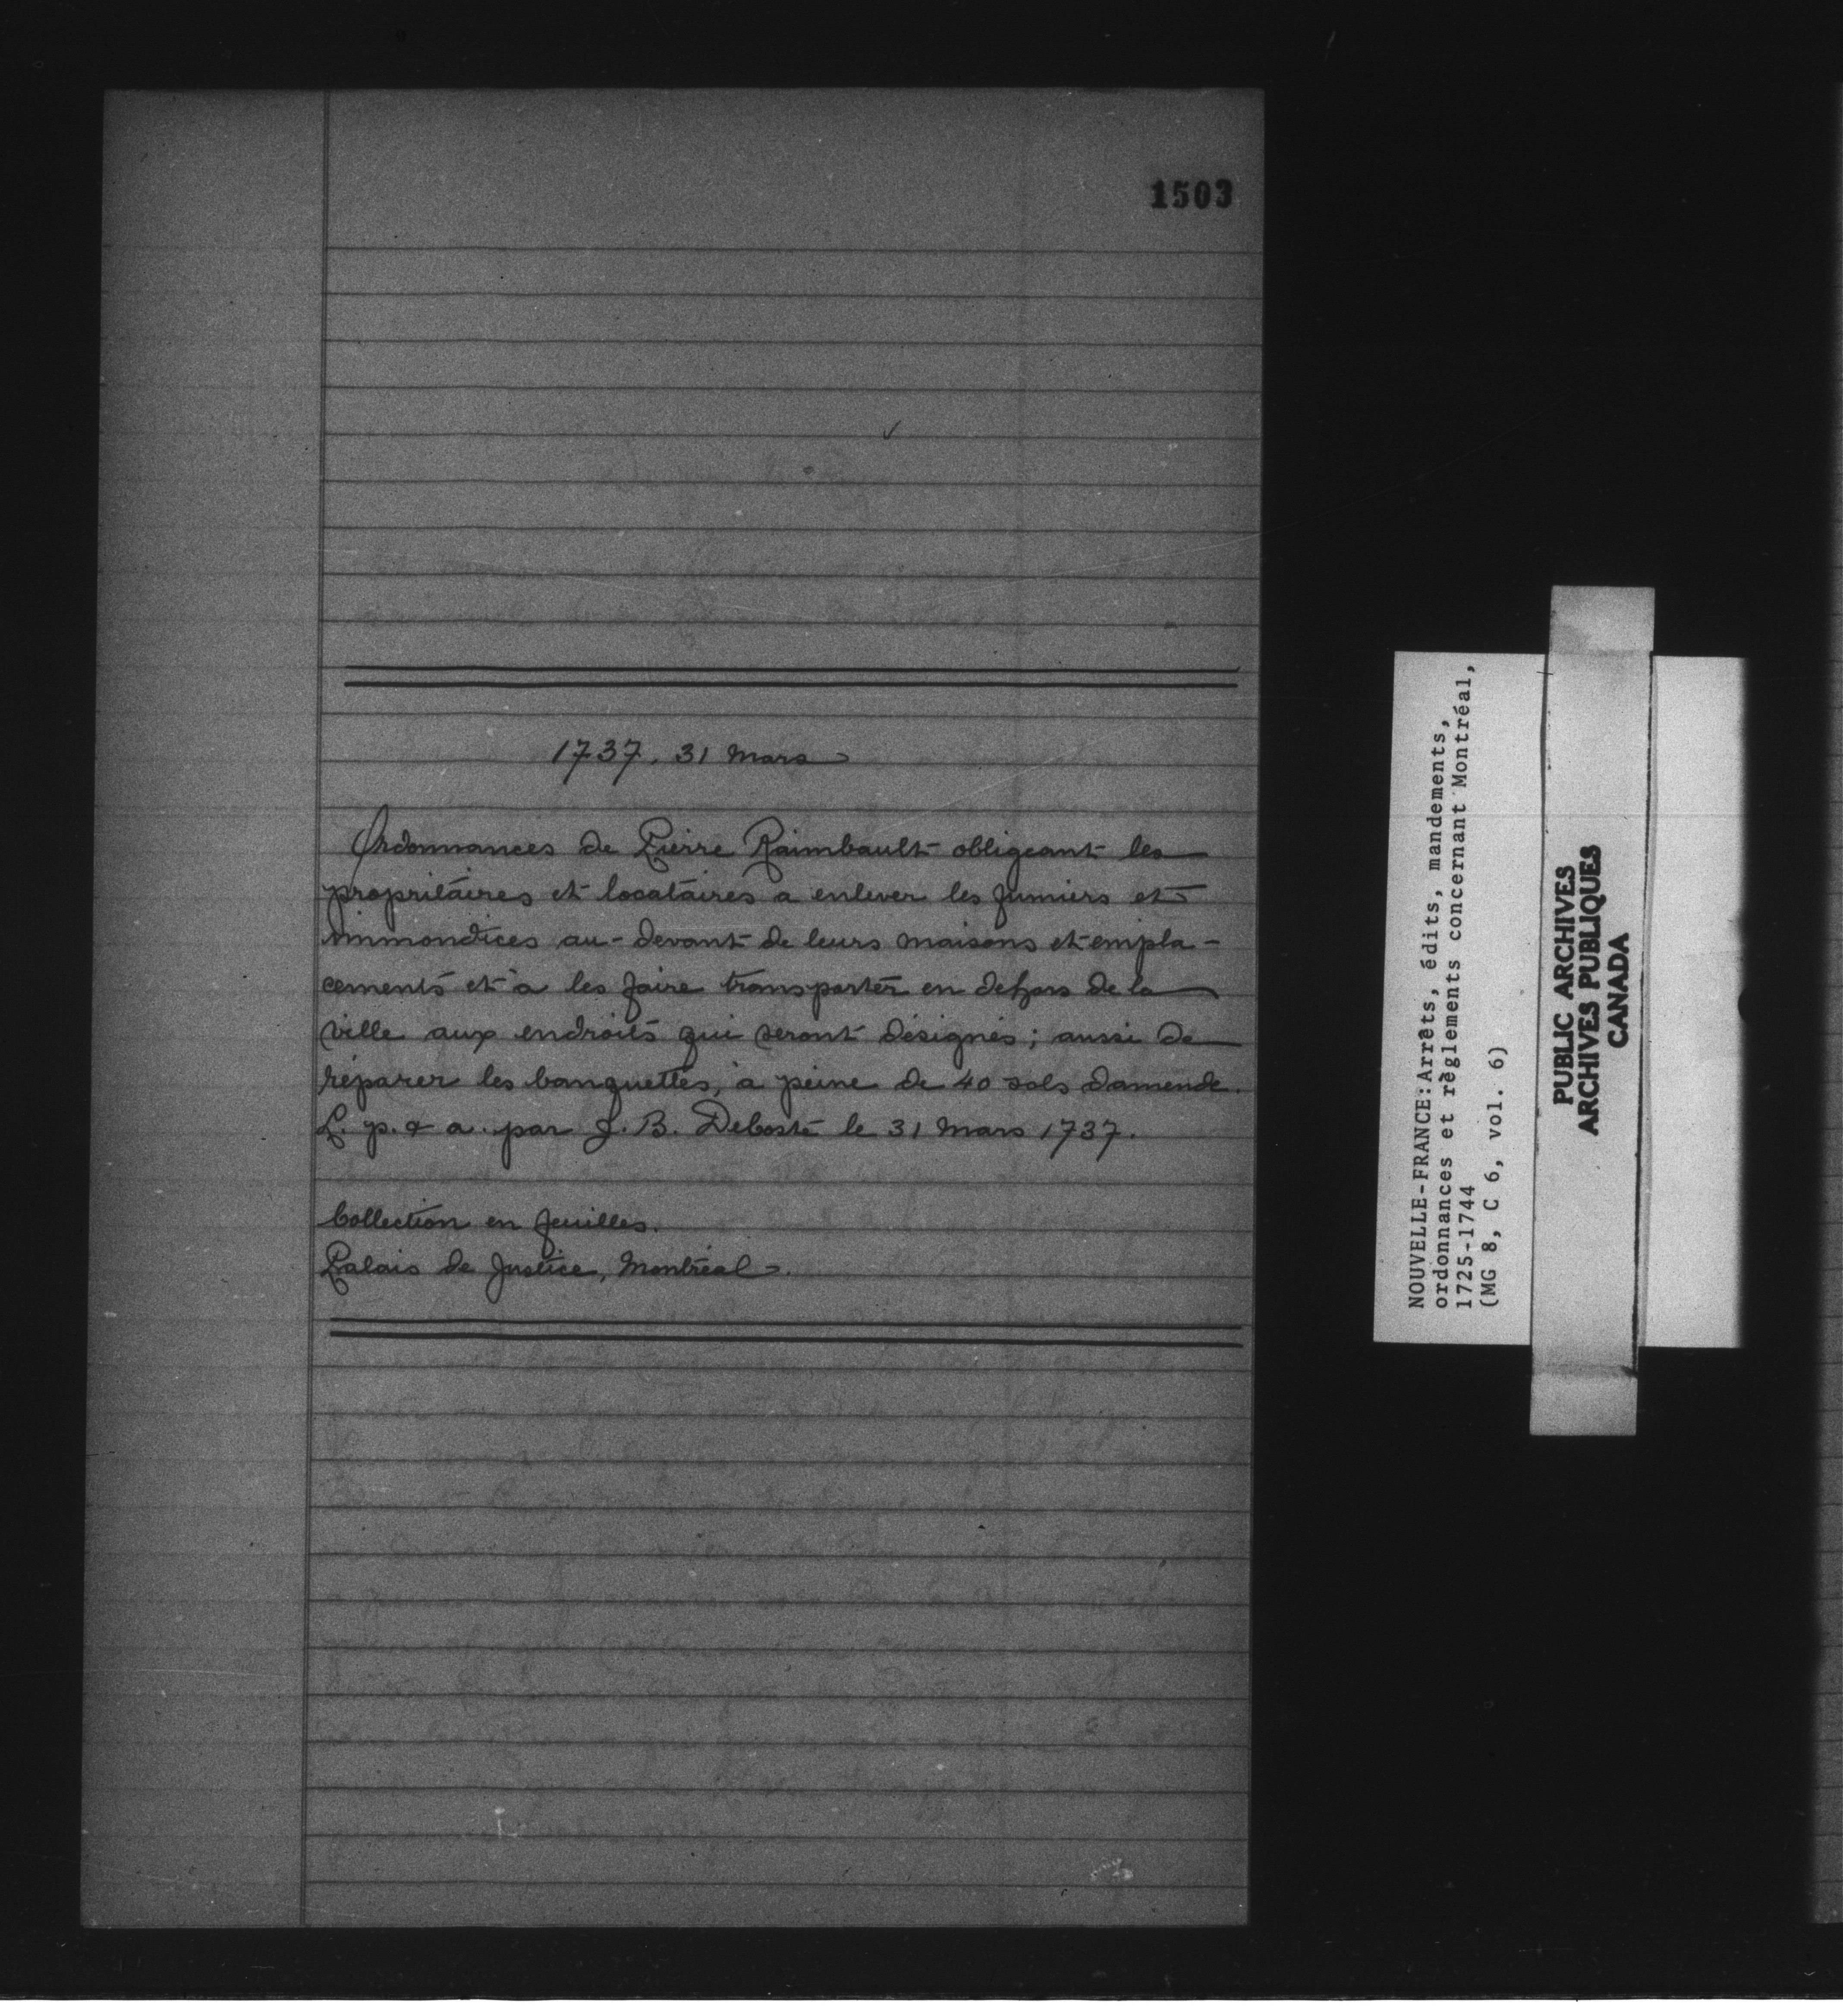 1503
1737. 31 Mars
Ordonnances de Pierre Raimbault obligeant les
propriétaires et locataires a enlever les fumiers et
immondices au-devant de leurs maisons et empla-
cements et à les faire transporter en dehors de la
ville aux endroits qui seront désignés; aussi de
réparer les banquettes, à peine de 40 sols damende.
L. p. & a. par J. B. Decoste le 31 Mars 1737.
Collection en feuilles.
Palais de Justice, Montréal.
NOUVELLE-FRANCE:Arrêts, édits, mandements,
ordonnances et règlements concernant Montréal,
1725-1744
(MG 8, C 6, vol. 6)
PUBLIC ARCHIVES
ARCHIVES PUBLIQUES
CANADA